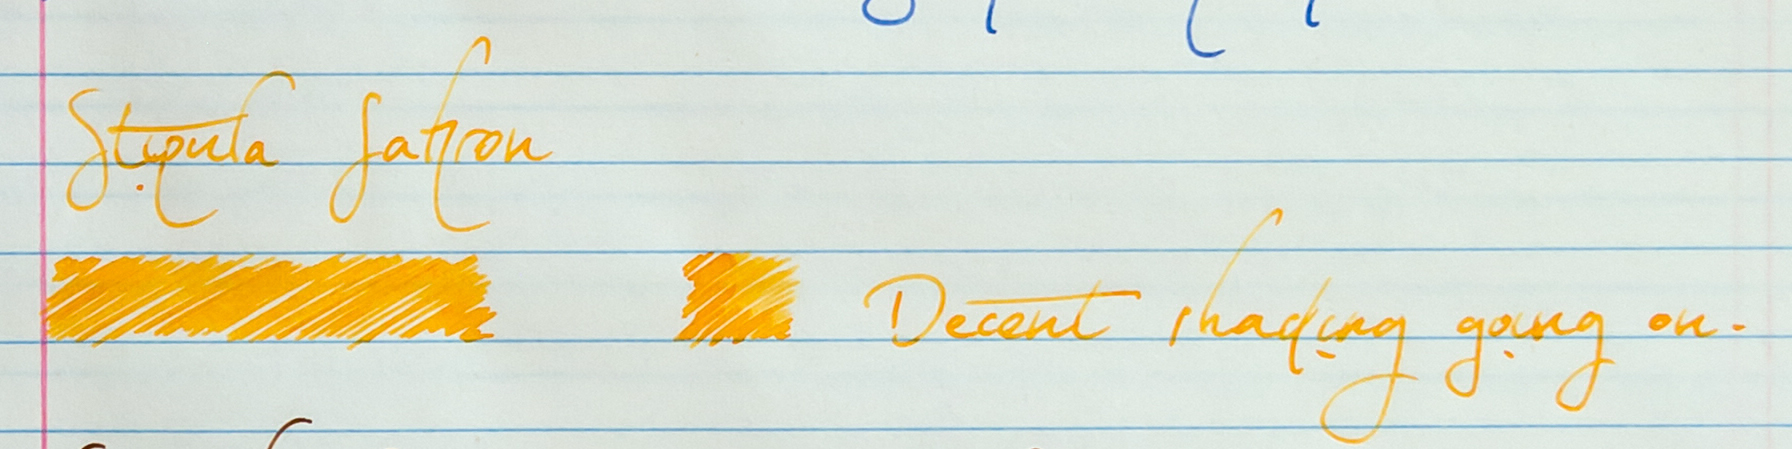 Stipula Saffron
Decent shading going on.